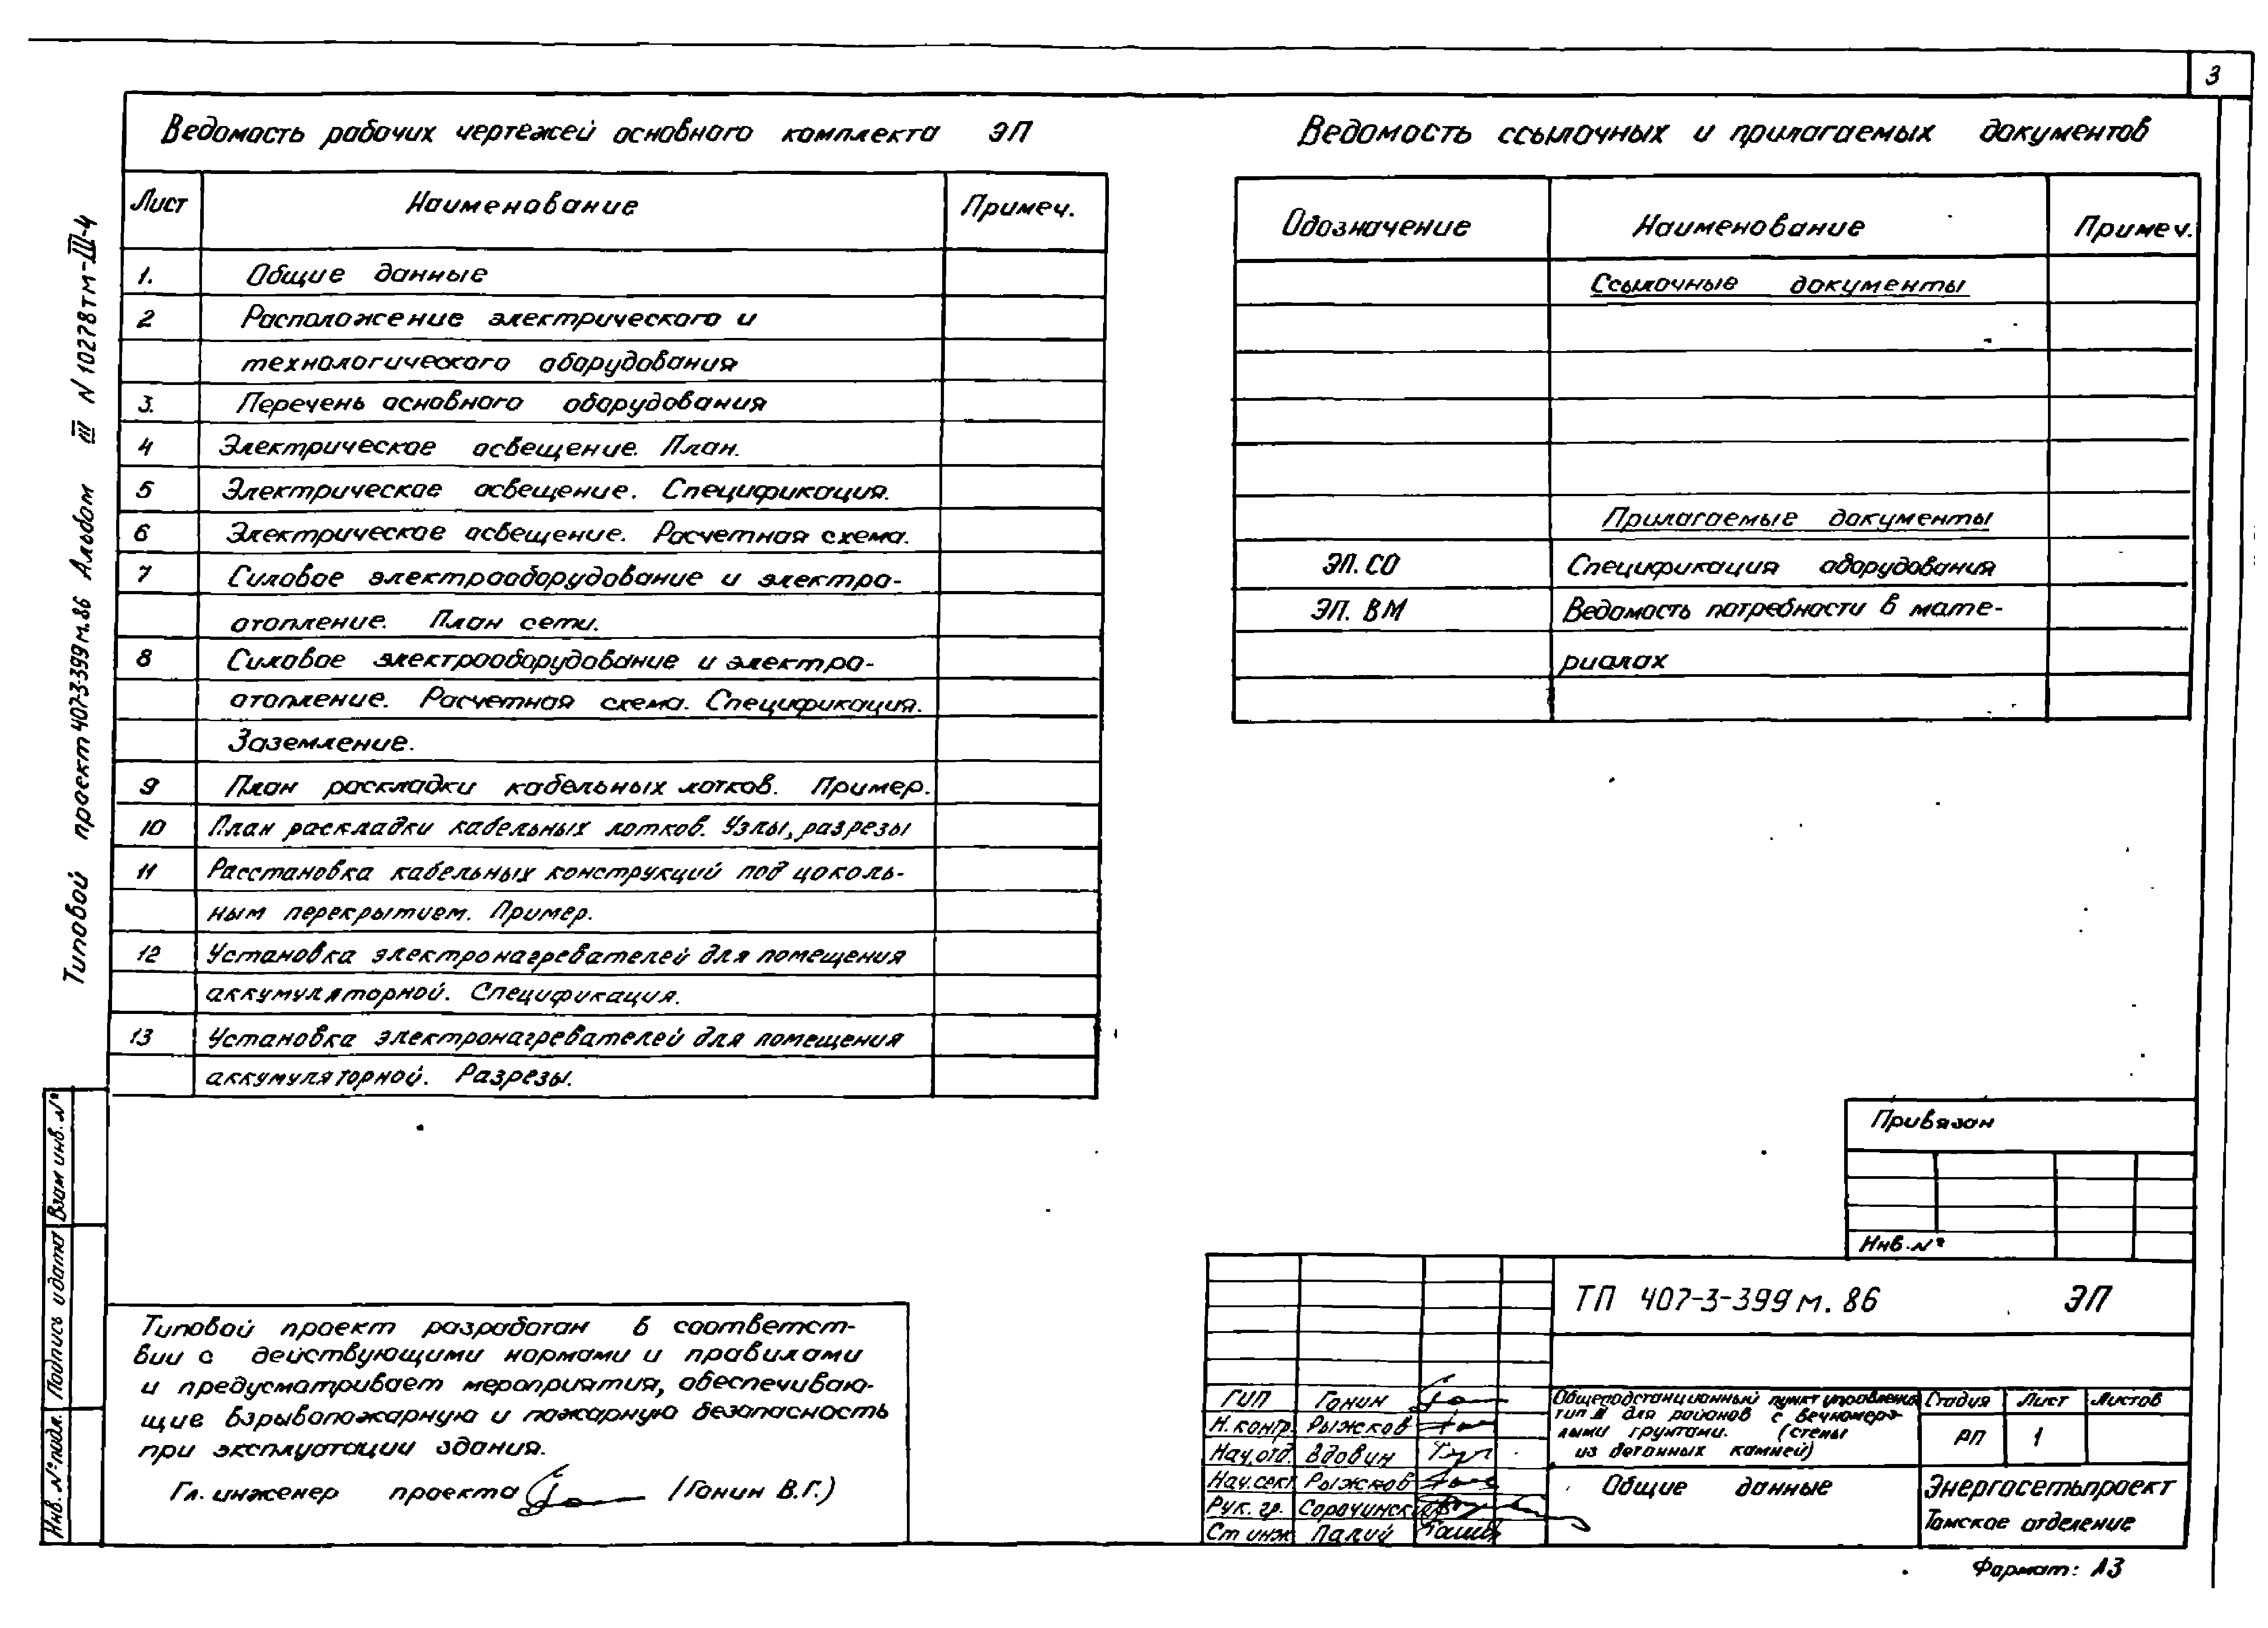 3
Ведомость рабочих чертежей основного комплекта ЭП
Лист Наименование Примеч.
1. Общие данные
2 Расположение электрического и
технологического оборудования
3. Перечень основного оборудования
4 Электрическое освещение. План.
5 Электрическое освещение. Спецификация.
6 Электрическое освещение. Расчетная схема.
7 Силовое электрооборудование и электро-
отопление. План сети.
8 Силовое электрооборудование и электро-
отопление. Расчетная схема. Спецификация.
Заземление.
9 План раскладки кабельных лотков. Пример.
10 План раскладки кабельных лотков. Узлы, разрезы
11 Расстановка кабельных конструкций под цоколь-
ным перекрытием. Пример.
12 Установка электронагревателей для помещения
аккумуляторной. Спецификация.
13 Установка электронагревателей для помещения
аккумуляторной. Разрезы.
Ведомость ссылочных и прилагаемых документов
Обозначение Наименование Примеч.
Ссылочные документы
Прилагаемые документы
ЭП. СО Спецификация оборудования
ЭП. ВМ Ведомость потребности в мате-
риалах
Типовой проект 407-3-399 м.86 Альбом III N 10278тм-III-4
Взам инв. №
Подпись и дата
Инв. № подл.
Типовой проект разработан в соответст-
вии с действующими нормами и правилами
и предусматривает мероприятия, обеспечиваю-
щие взрывопожарную и пожарную безопасность
при эксплуатации здания.
Гл. инженер проекта (Гонин В.Г.)
Привязан
Инв. №
ТП 407-3-399 м. 86 ЭП
ГИП Гонин
Н. контр. Рыжков
Нач. отд. Вдовин
Нач. сект. Рыжков
Рук. гр.
Ст инж Палий
Общеподстанционный пункт управления
тип III для районов с вечномерз-
лыми грунтами. (стены
из бетонных камней)
Стадия Лист Листов
РП 1
Общие данные
Энергосетьпроект
Томское отделение
Формат: А3